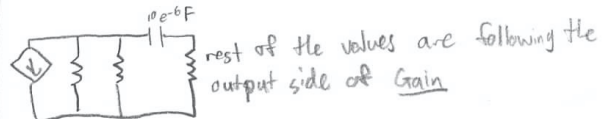 10e-6F
rest of the values are following the
output side of Gain